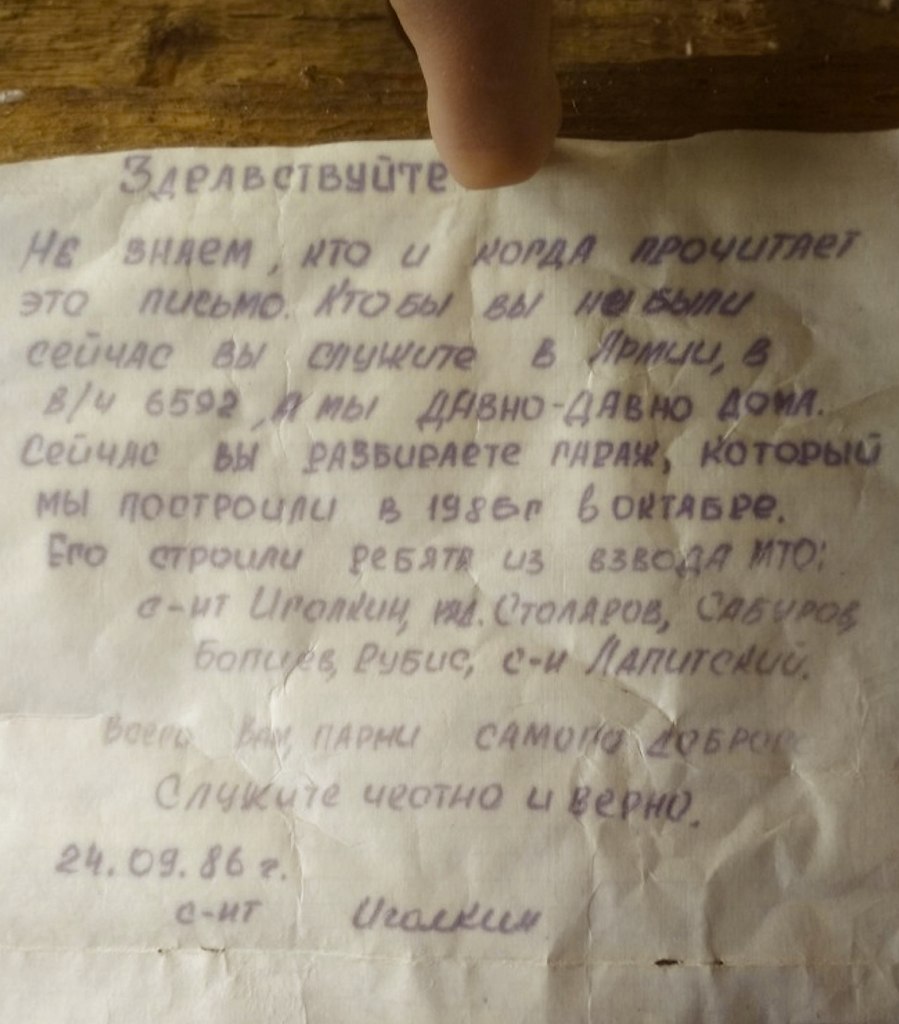 Здравствуйте
Не знаем, кто и когда прочитает
это письмо. Кто бы вы не были
сейчас вы служите в Армии, в
в/ч 6592, а мы давно-давно дома.
Сейчас вы разбираете гараж, который
мы построили в 1986г в октябре.
Его строили ребята из взвода МТО:
с-нт Иголкин, ряд. Столаров, Сабуров,
Рубис, с-н Лапитский.
Всего вам, парни самого доброго
Служите честно и верно.
24.09.86 г.
с-нт Иголкин